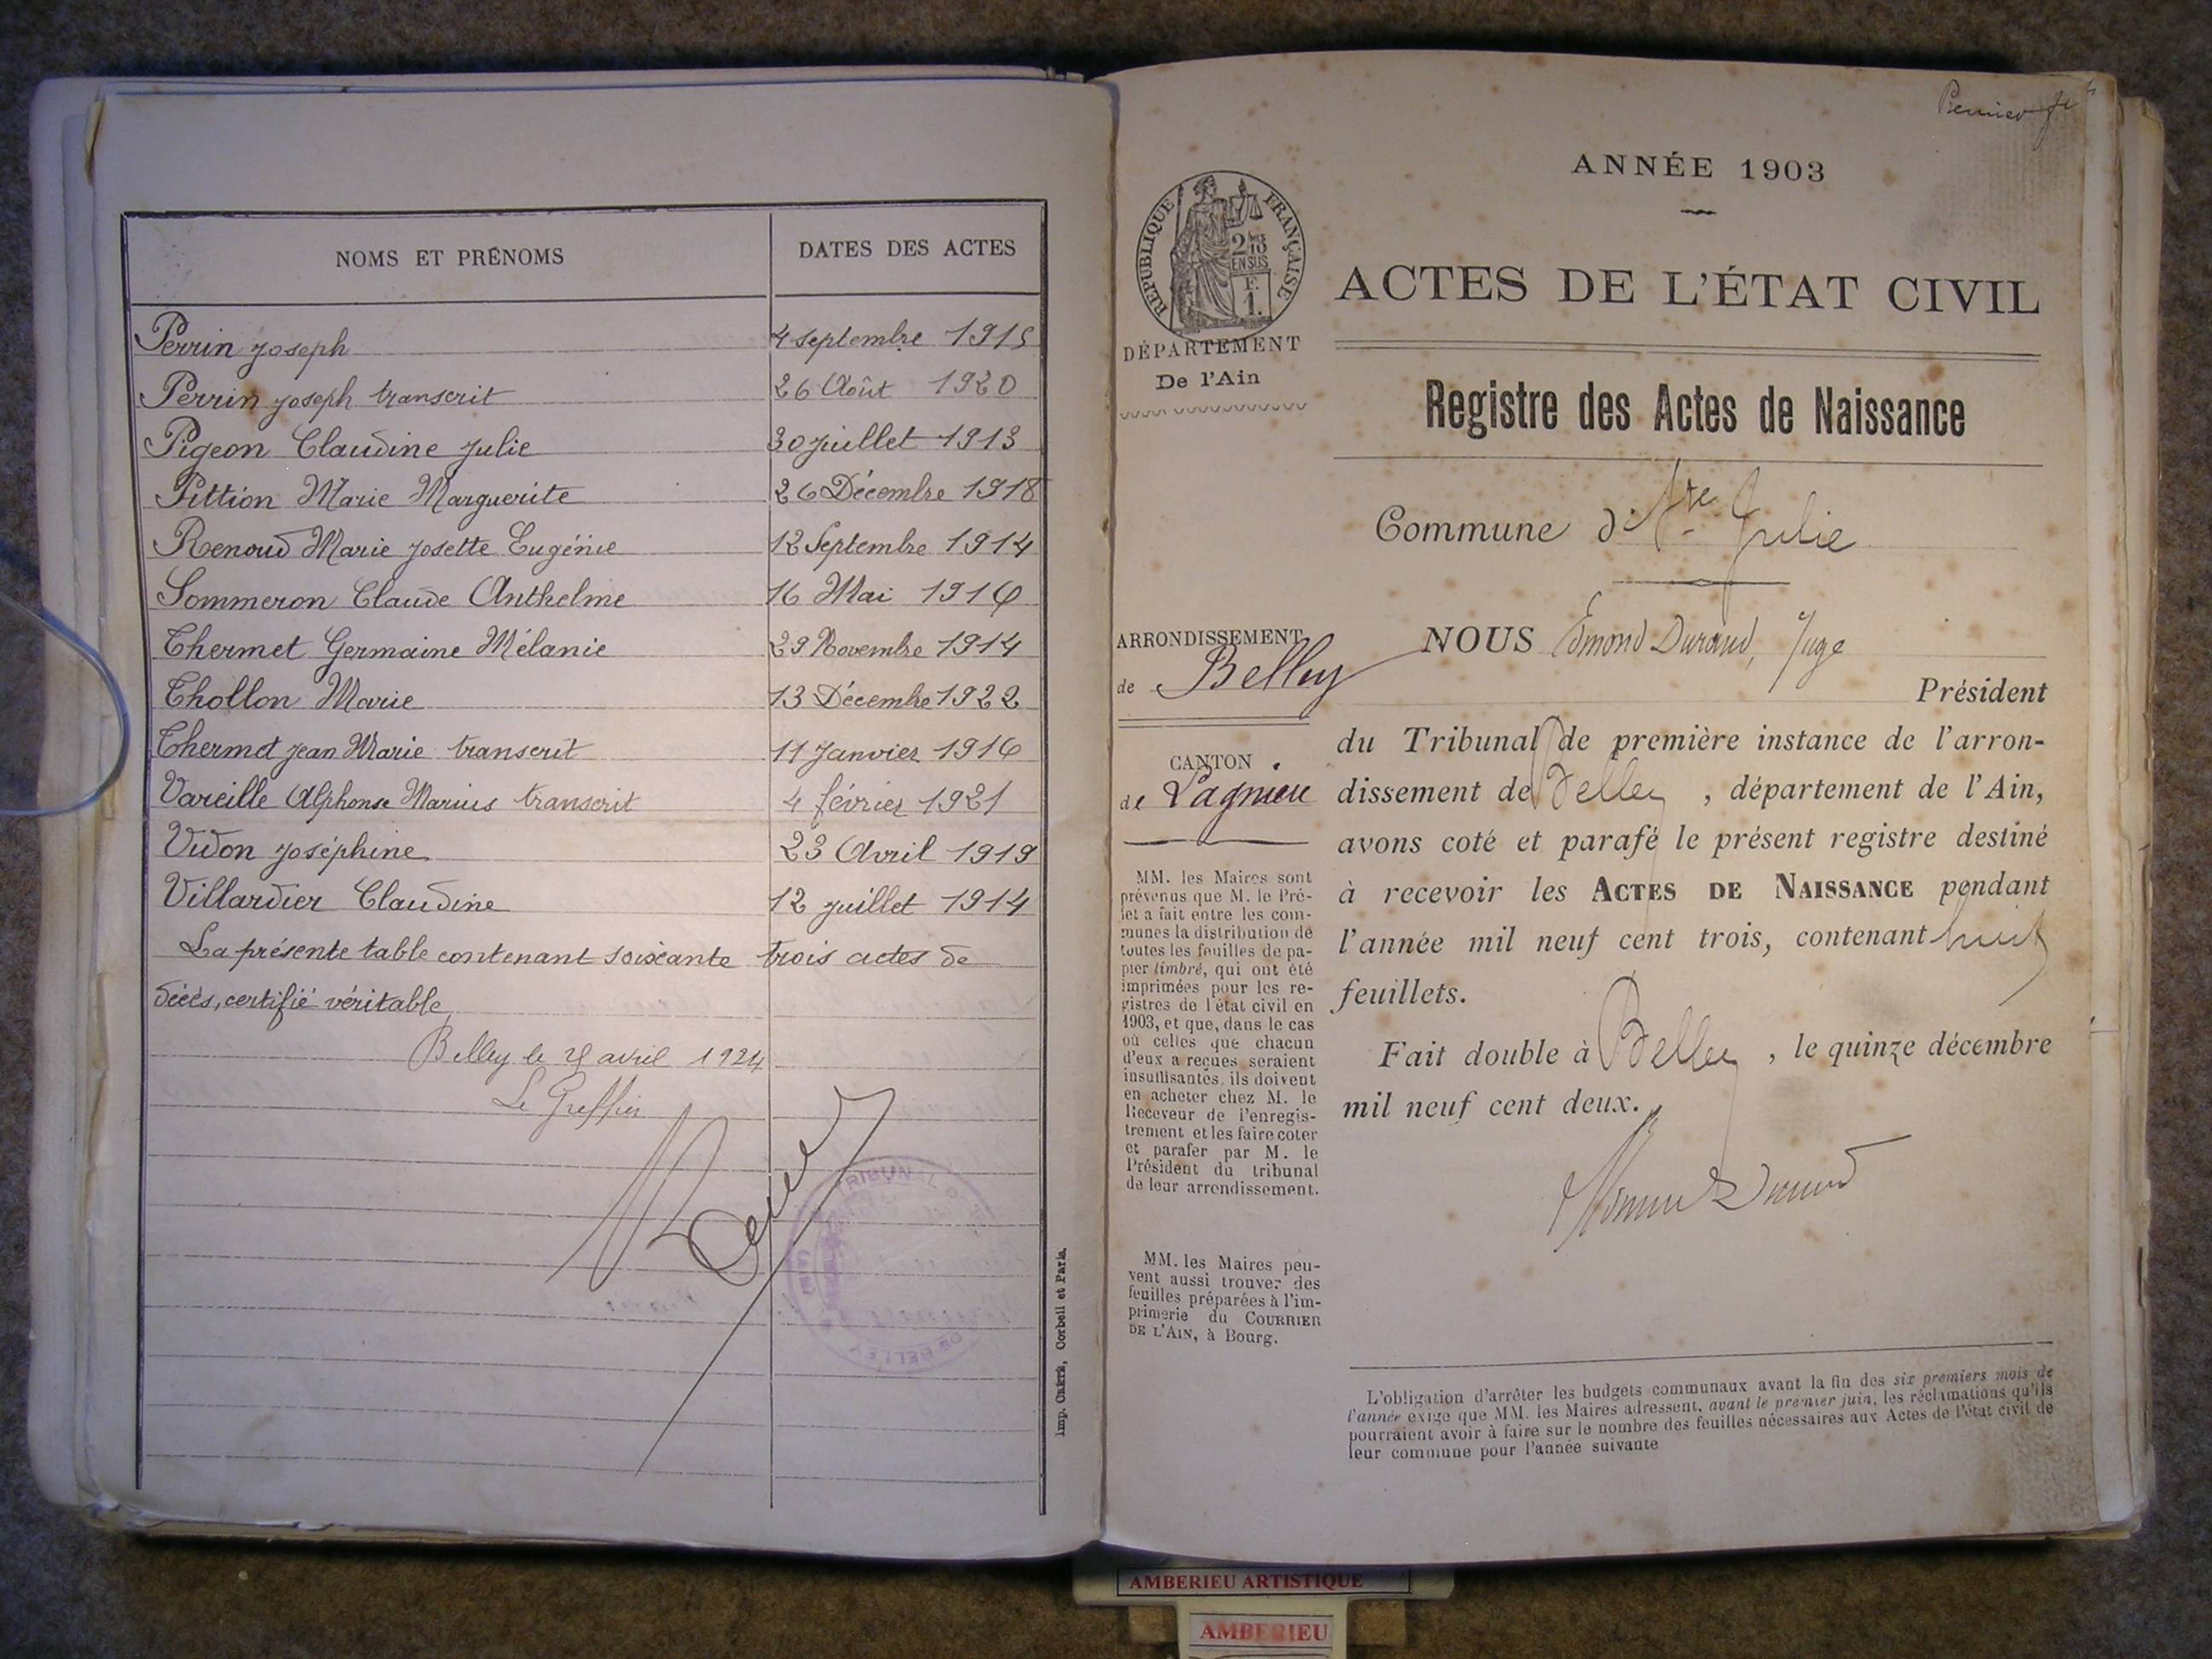 NOMS ET PRÉNOMS
DATES DES ACTES
Perrin Joseph 4 septembre 1915
Perrin Joseph transcrit 26 Août 1920
Pigeon Claudine Julie 30 juillet 1913
Pittion Marie Marguerite 26 Décembre 1918
Renoud Marie Josette Eugénie 12 Septembre 1914
Sommeron Claude Anthelme 16 Mai 1916
Thermet Germaine Mélanie 29 Novembre 1914
Thollon Marie 13 Décembre 1922
Thermet Jean Marie transcrit 11 Janvier 1916
Vareille Alphonse Marius transcrit 4 février 1921
Vidon Joséphine 23 Avril 1919
Villardier Claudine 12 juillet 1914
La présente table contenant soixante trois actes de
décès, certifié véritable
Belley le avril 1924
Le Greffier
TRIBUNAL
DE BELLEY
Imp. Corbeil et Paris.
Premier
ANNÉE 1903
RÉPUBLIQUE FRANÇAISE
EN SUS
ACTES DE L'ÉTAT CIVIL
DÉPARTEMENT
De l'Ain
Registre des Actes de Naissance
Commune de Ste Julie
ARRONDISSEMENT
de Belley
CANTON
de Lagnieu
MM. les Maires sont
prévenus que M. le Pré-
fet a fait entre les com-
munes la distribution de
toutes les feuilles de pa-
pier timbré, qui ont été
imprimées pour les re-
gistres de l'état civil en
1903, et que, dans le cas
où celles que chacun
d'eux a reçues seraient
insuffisantes, ils doivent
en acheter chez M. le
Receveur de l'enregis-
trement et les faire coter
et parafer par M. le
Président du tribunal
de leur arrondissement.
MM. les Maires peu-
vent aussi trouver des
feuilles préparées à l'im-
primerie du COURRIER
DE L'AIN, à Bourg.
NOUS Edmond Durand, Juge
Président
du Tribunal de première instance de l'arron-
dissement de Belley, département de l'Ain,
avons coté et parafé le présent registre destiné
à recevoir les ACTES DE NAISSANCE pendant
l'année mil neuf cent trois, contenant huit
feuillets.
Fait double à Belley, le quinze décembre
mil neuf cent deux.
L'obligation d'arrêter les budgets communaux avant la fin des six premiers mois de
l'année exige que MM. les Maires adressent, avant le premier juin, les réclamations qu'ils
pourraient avoir à faire sur le nombre des feuilles nécessaires aux Actes de l'état civil de
leur commune pour l'année suivante
AMBERIEU ARTISTIQUE
AMBERIEU